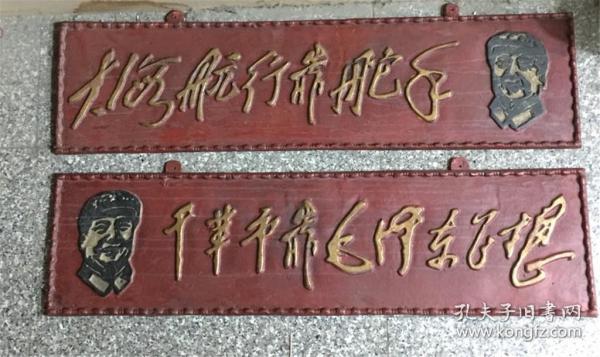 大海航行靠舵手
干革命靠毛泽东思想
孔夫子旧书网
www.kongfz.com